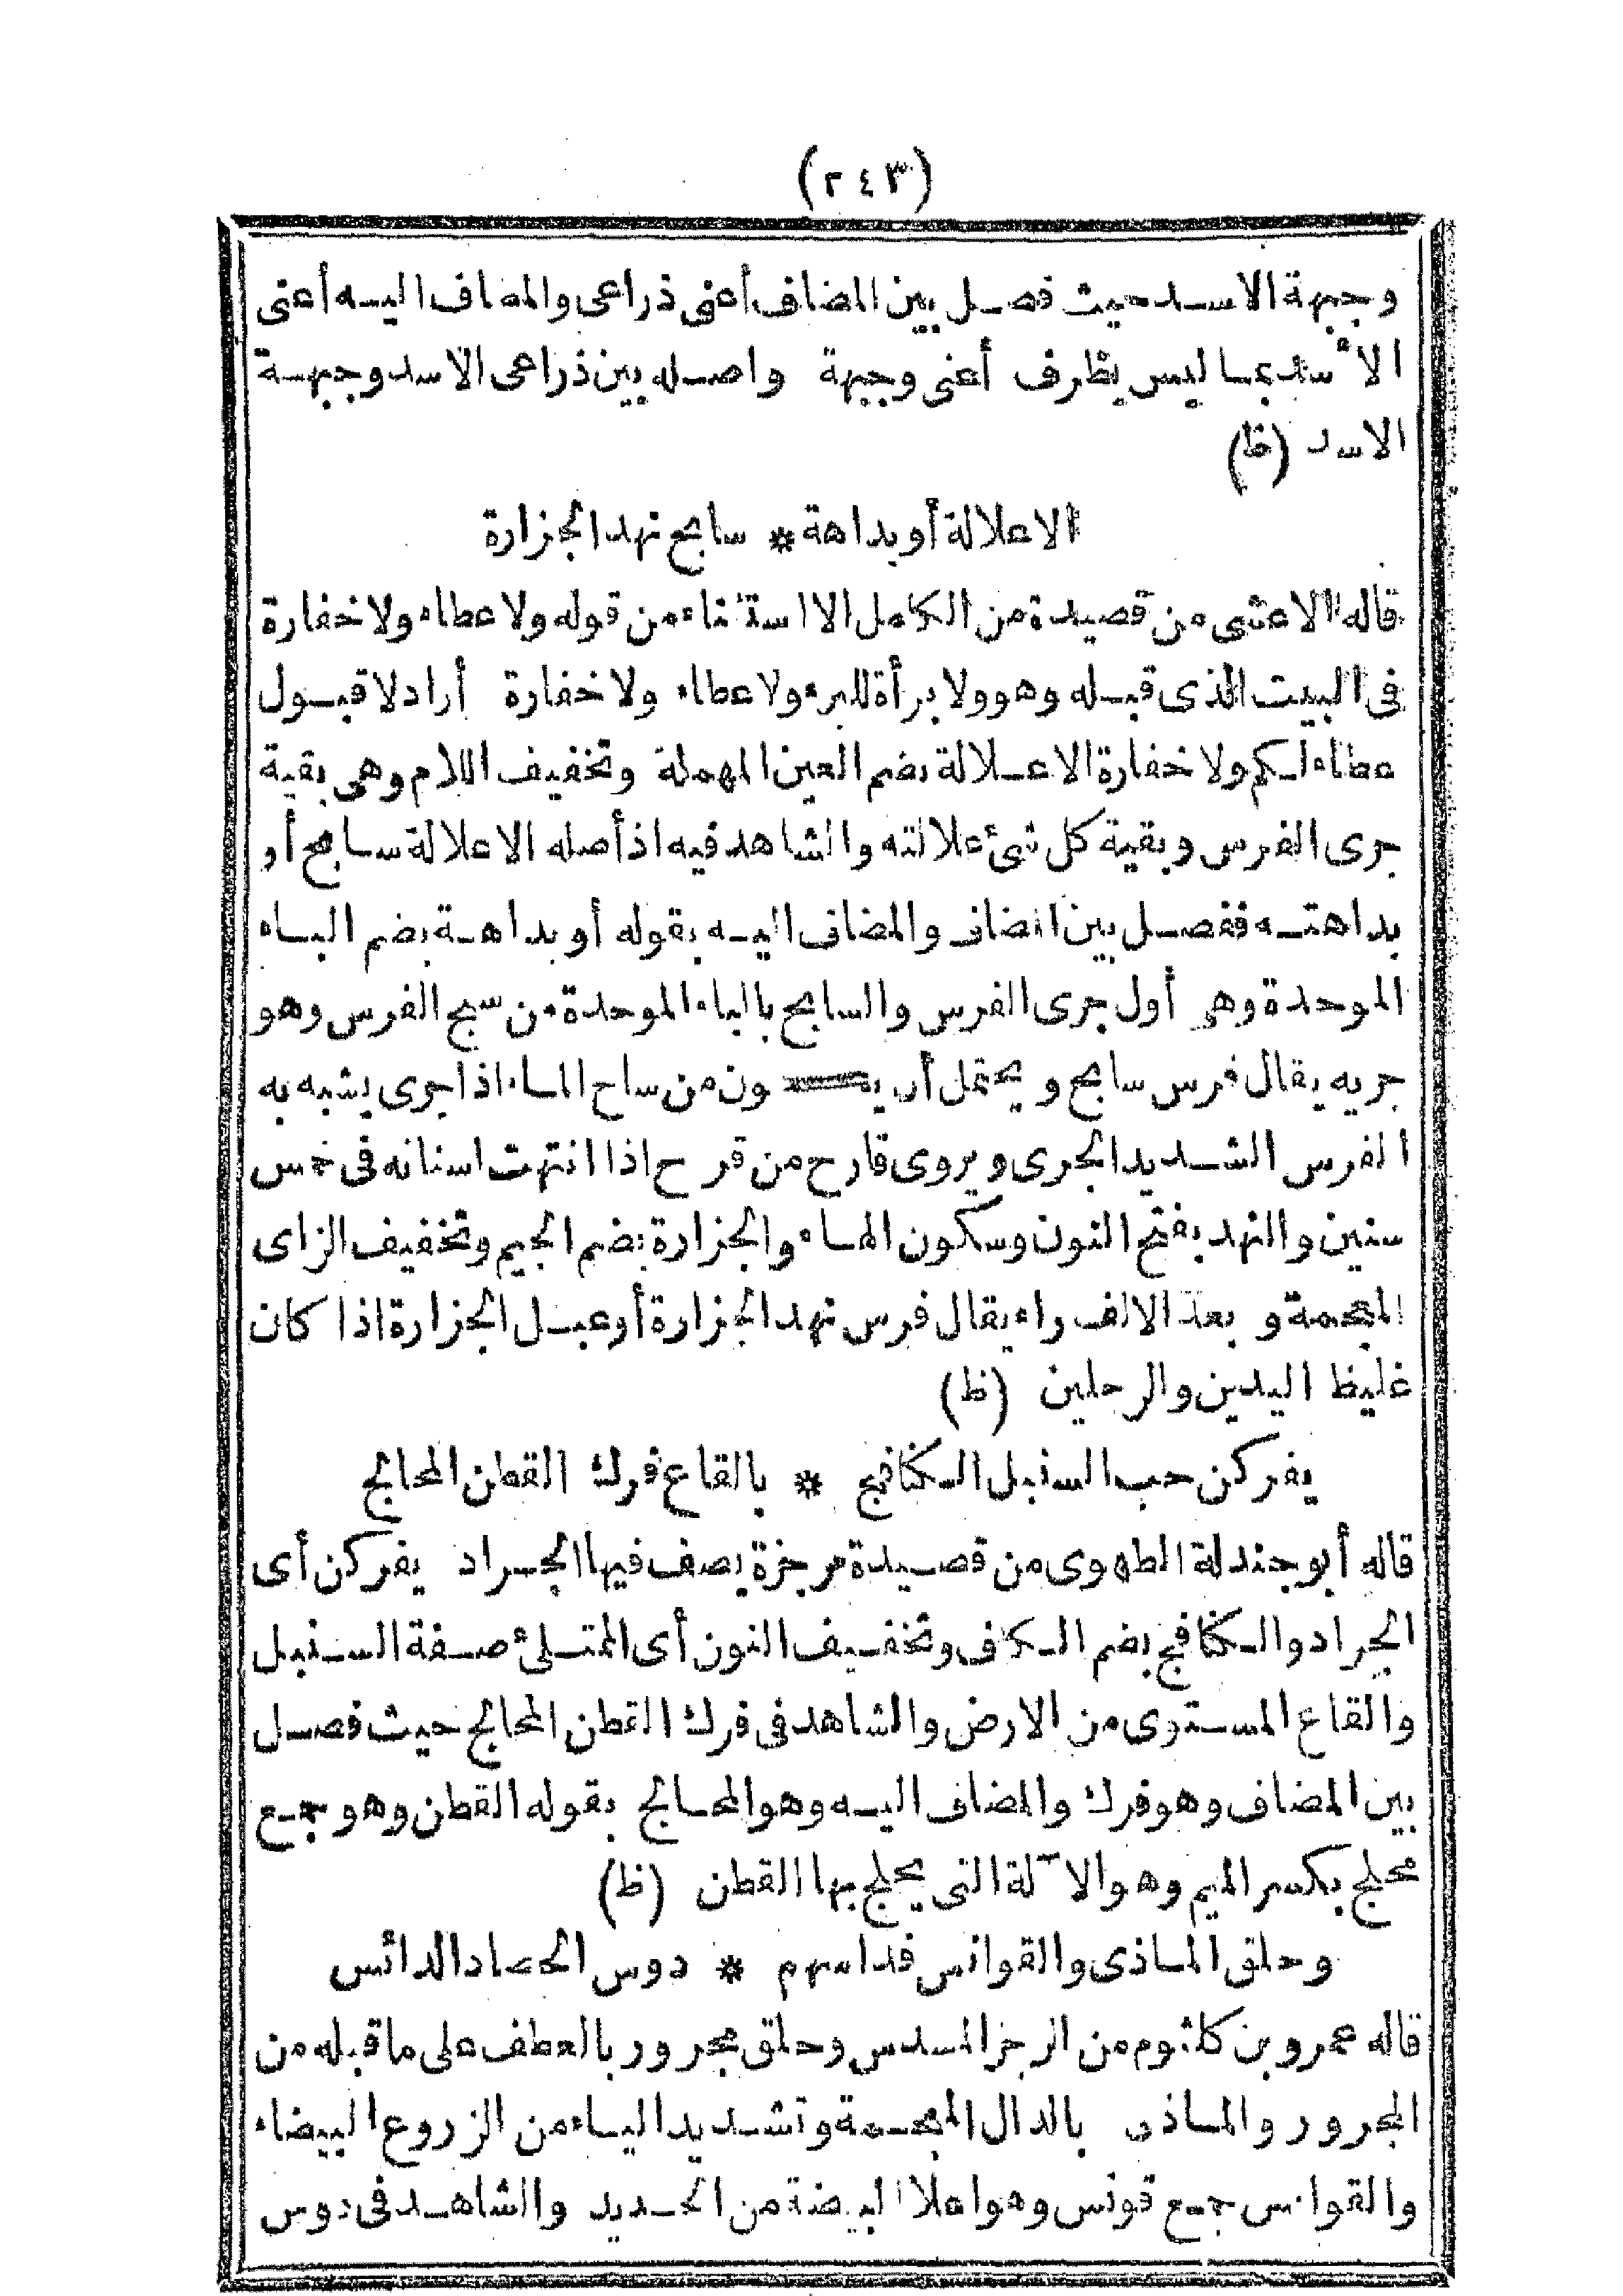 (٢٤٣)
وجبهة الاسد حيث فصل بين المضاف أعنى ذراعى والمضاف اليه أعنى
الأسد بما ليس بظرف أعنى وجبهة واصله بين ذراعى الاسد وجبهة
الاسد (ظ)
الاعلالة أو بداهة * سابح نهد الجزارة
قاله الاعشى من قصيدة من الكامل الا استثناء من قوله ولا عطاء ولا خفارة
فى البيت الذى قبله وهو ولا براءة للبرء ولا عطاء ولا خفارة أراد لا قبول
عطاء لكم ولا خفارة الاعلالة بضم العين المهملة وتخفيف اللام وهى بقية
جرى الفرس وبقية كل شئ علالته والشاهد فيه اذ أصله الاعلالة سابح أو
بداهته ففصل بين المضاف والمضاف اليه بقوله أو بداهة بضم الباء
الموحدة وهى أول جرى الفرس والسابح بالباء الموحدة من سبح الفرس وهو
جريه يقال فرس سابح ويحتمل أن يكون من ساح الماء اذا جرى يشبه به
الفرس الشديد الجرى ويروى قارح من قرح اذا انتهت اسنانه فى خمس
سنين والنهد بفتح النون وسكون الهاء والجزارة بضم الجيم وتخفيف الزاى
المعجمة وبعد الالف راء يقال فرس نهد الجزارة أو عبل الجزارة اذا كان
غليظ اليدين والرجلين (ظ)
يفركن حب السنبل الكنافج * بالقاع فرك القطن المحالج
قاله أبو جندلة الطهوى من قصيدة مرجزة يصف فيها الجراد يفركن أى
الجراد والكنافج بضم الكاف وتخفيف النون أى الممتلئ صفة السنبل
والقاع المستوى من الارض والشاهد فى فرك القطن المحالج حيث فصل
بين المضاف وهو فرك والمضاف اليه وهو المحالج بقوله القطن وهو جمع
محلج بكسر الميم وهو الآلة التى يحلج بها القطن (ظ)
وحلق الماذى والقوانس فداسهم * دوس الحصاد الدائس
قاله عمرو بن كلثوم من الرجز المسدس وحلق مجرور بالعطف على ما قبله من
المجرور والماذى بالدال المعجمة وتشديد الياء من الزروع البيضاء
والقوانس جمع قونس وهو اعلا البيضة من الحديد والشاهد فى دوس